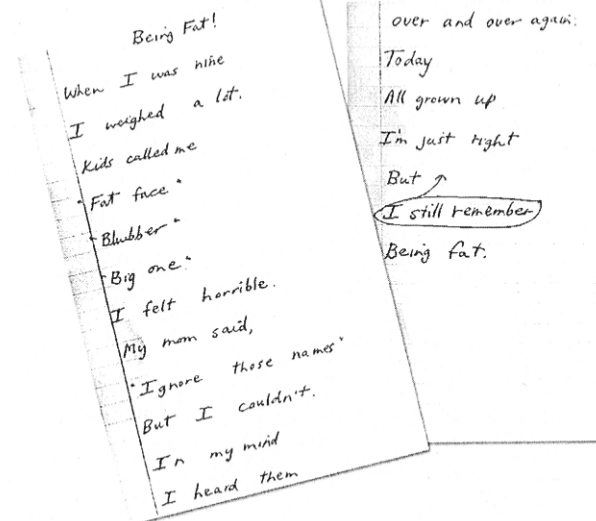 Being Fat!
When I was nine
I weighed a lot.
Kids called me
"Fat face"
"Blubber"
"Big one."
I felt horrible.
My mom said,
"Ignore those names"
But I couldn't.
In my mind
I heard them
over and over again.
Today
All grown up
I'm just right
But
I still remember
Being fat.